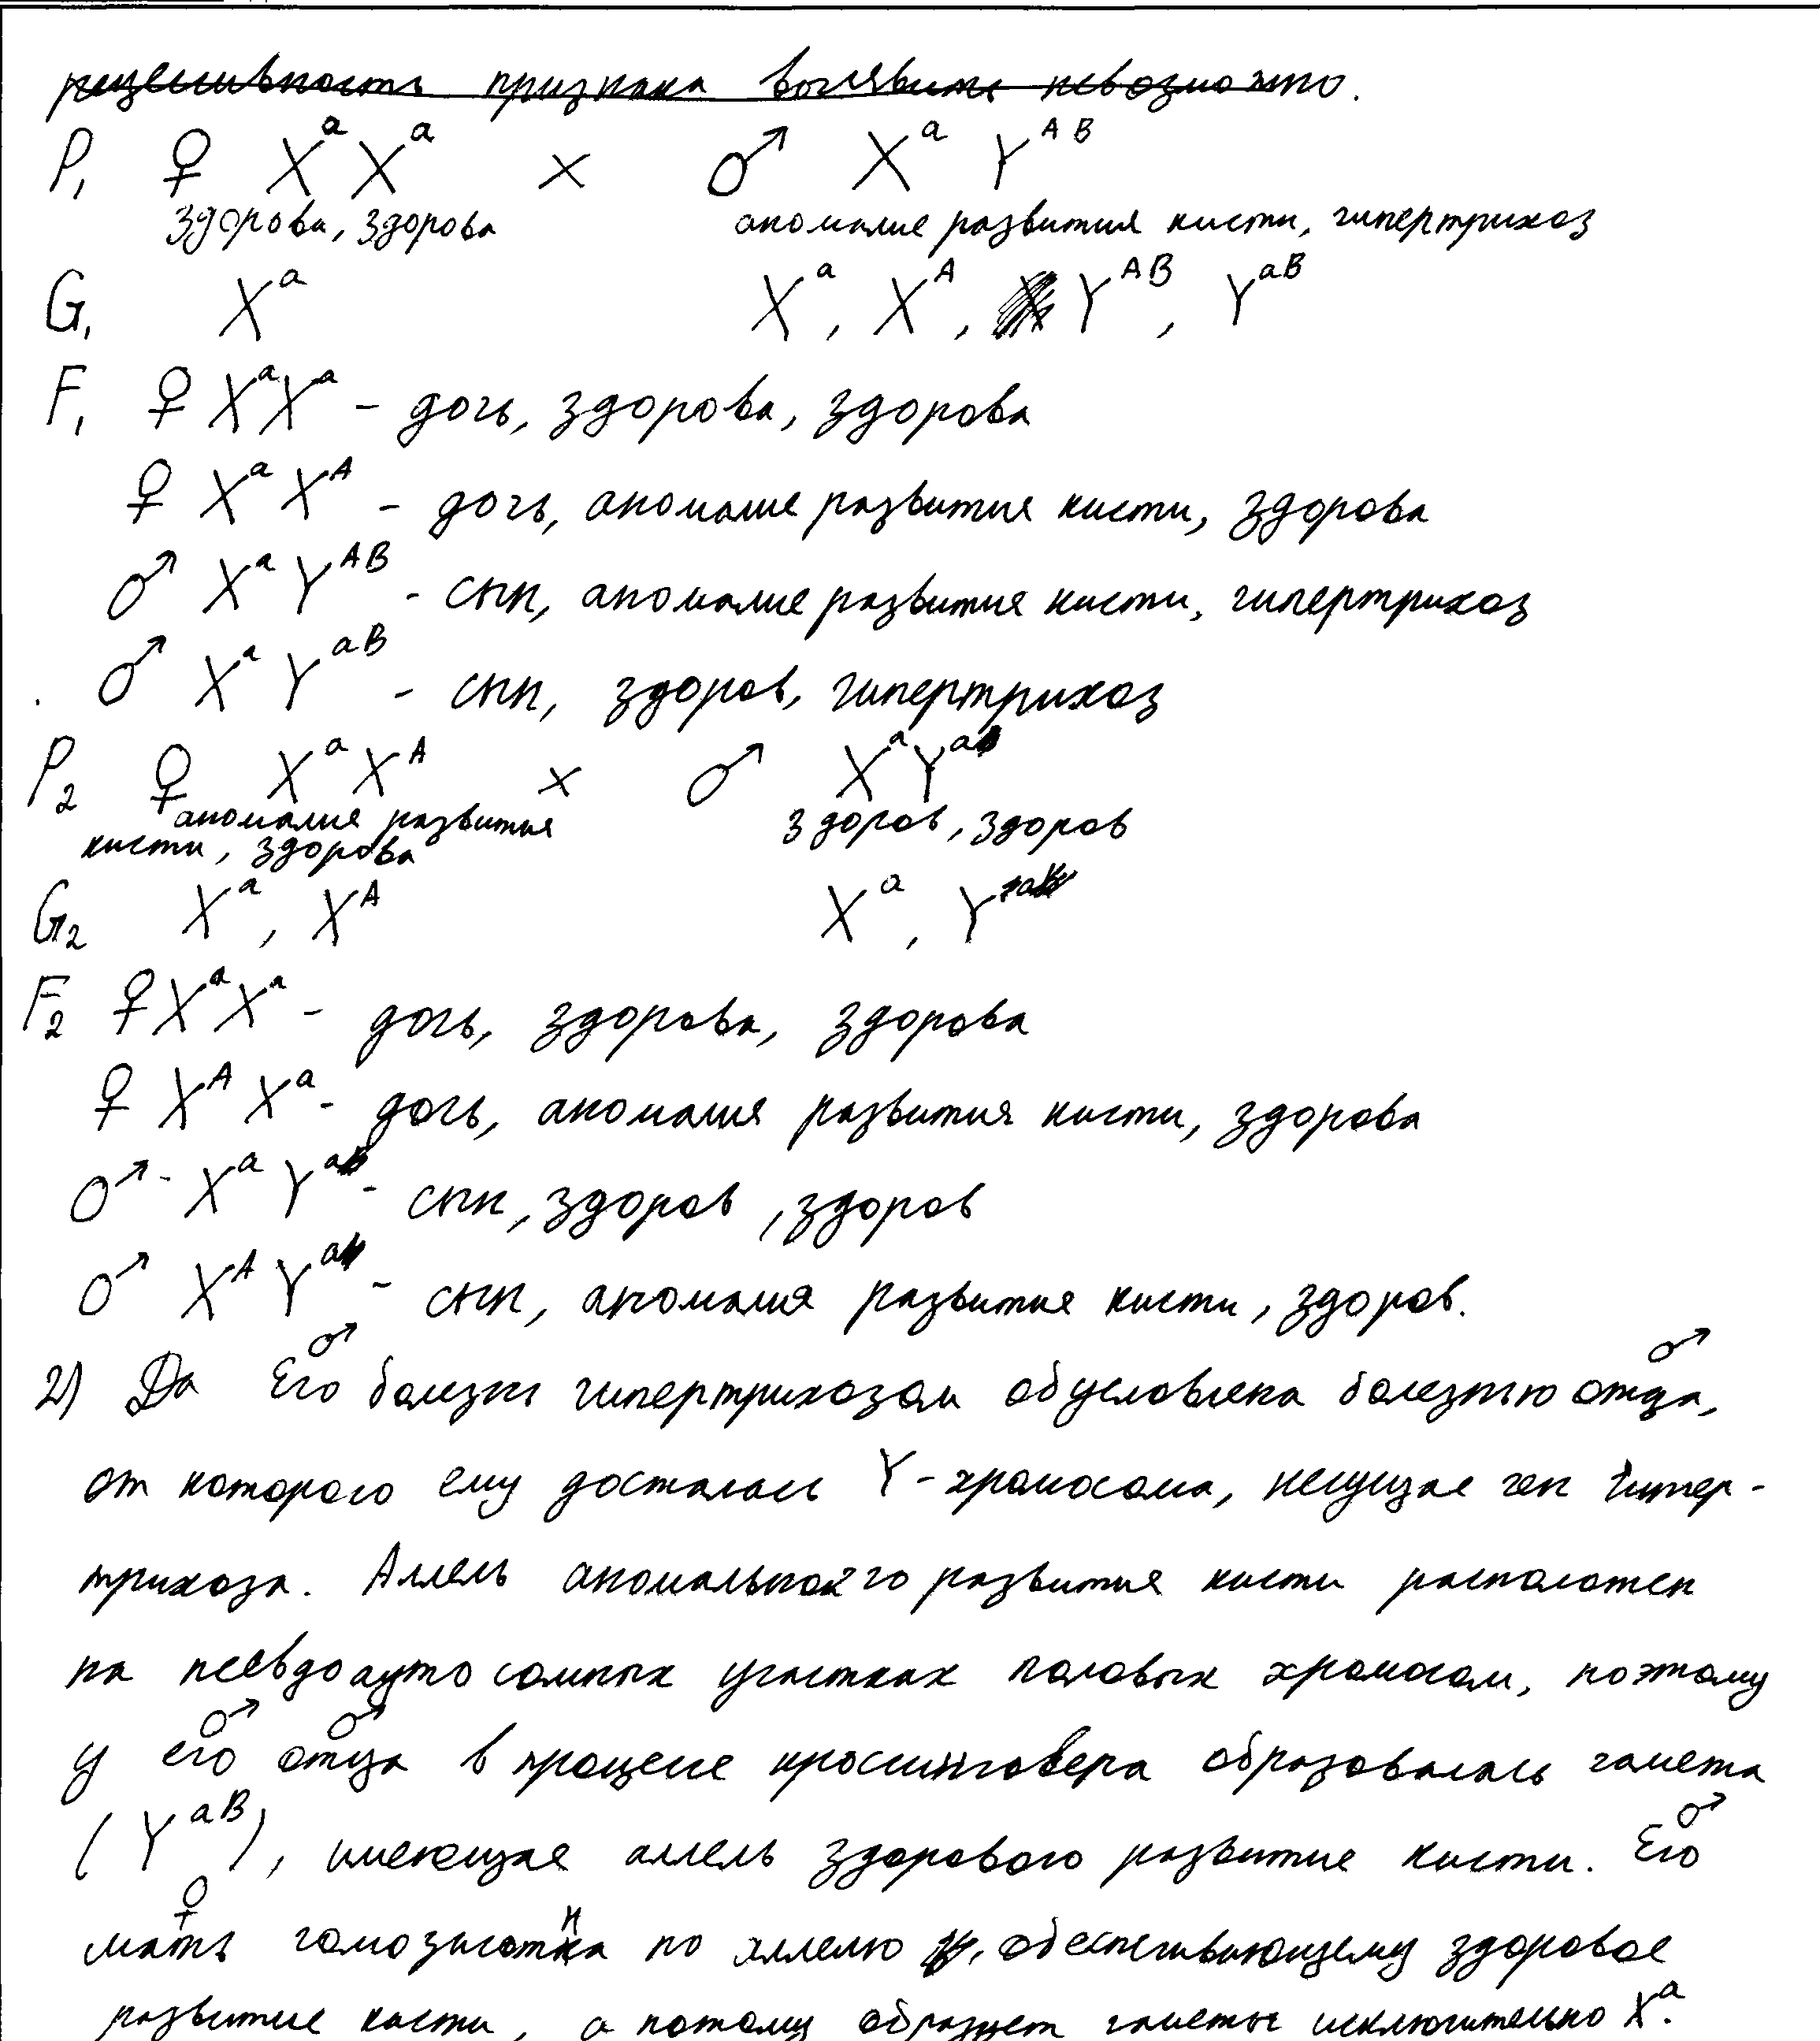 рецессивность признака выявить невозможно.
P₁ ♀ XᵃXᵃ × ♂ Xᵃ Yᴬᴮ
здорова, здорова аномалие развития кисти, гипертрихоз
G₁ Xᵃ Xᵃ, Xᴬ, Yᴬᴮ, Yᵃᴮ
F₁ ♀ XᵃXᵃ - дочь, здорова, здорова
♀ XᵃXᴬ - дочь, аномалие развития кисти, здорова
♂ XᵃYᴬᴮ - сын, аномалие развития кисти, гипертрихоз
♂ XᵃYᵃᴮ - сын, здоров, гипертрихоз
P₂ ♀ XᵃXᴬ × ♂ XᵃYᵃ
аномалия развития здоров, здоров
кисти, здорова
G₂ Xᵃ, Xᴬ Xᵃ, Yᵃ
F₂ ♀XᵃXᵃ - дочь, здорова, здорова
♀ XᴬXᵃ - дочь, аномалия развития кисти, здорова
♂ - XᵃYᵃ - сын, здоров, здоров
♂ XᴬYᵃ - сын, аномалия развития кисти, здоров.
2) Да Его♂ болезнь гипертрихозом обусловлена болезнью отца♂,
от которого ему досталась Y-хромосома, несущае ген гипер-
трихоза. Аллель аномального развития кисти расположен
на псевдоаутосомных участках половых хромосом, поэтому
у его♂ отца♂ в процессе кроссинговера образовалась гамета
(Yᵃᴮ), имеющае аллель здорового развитие кисти. Его♂
мать♀ гомозиготна по аллелю, обеспечивающему здоровое
развитие кисти, а потому образует гаметы исключительно Xᵃ.